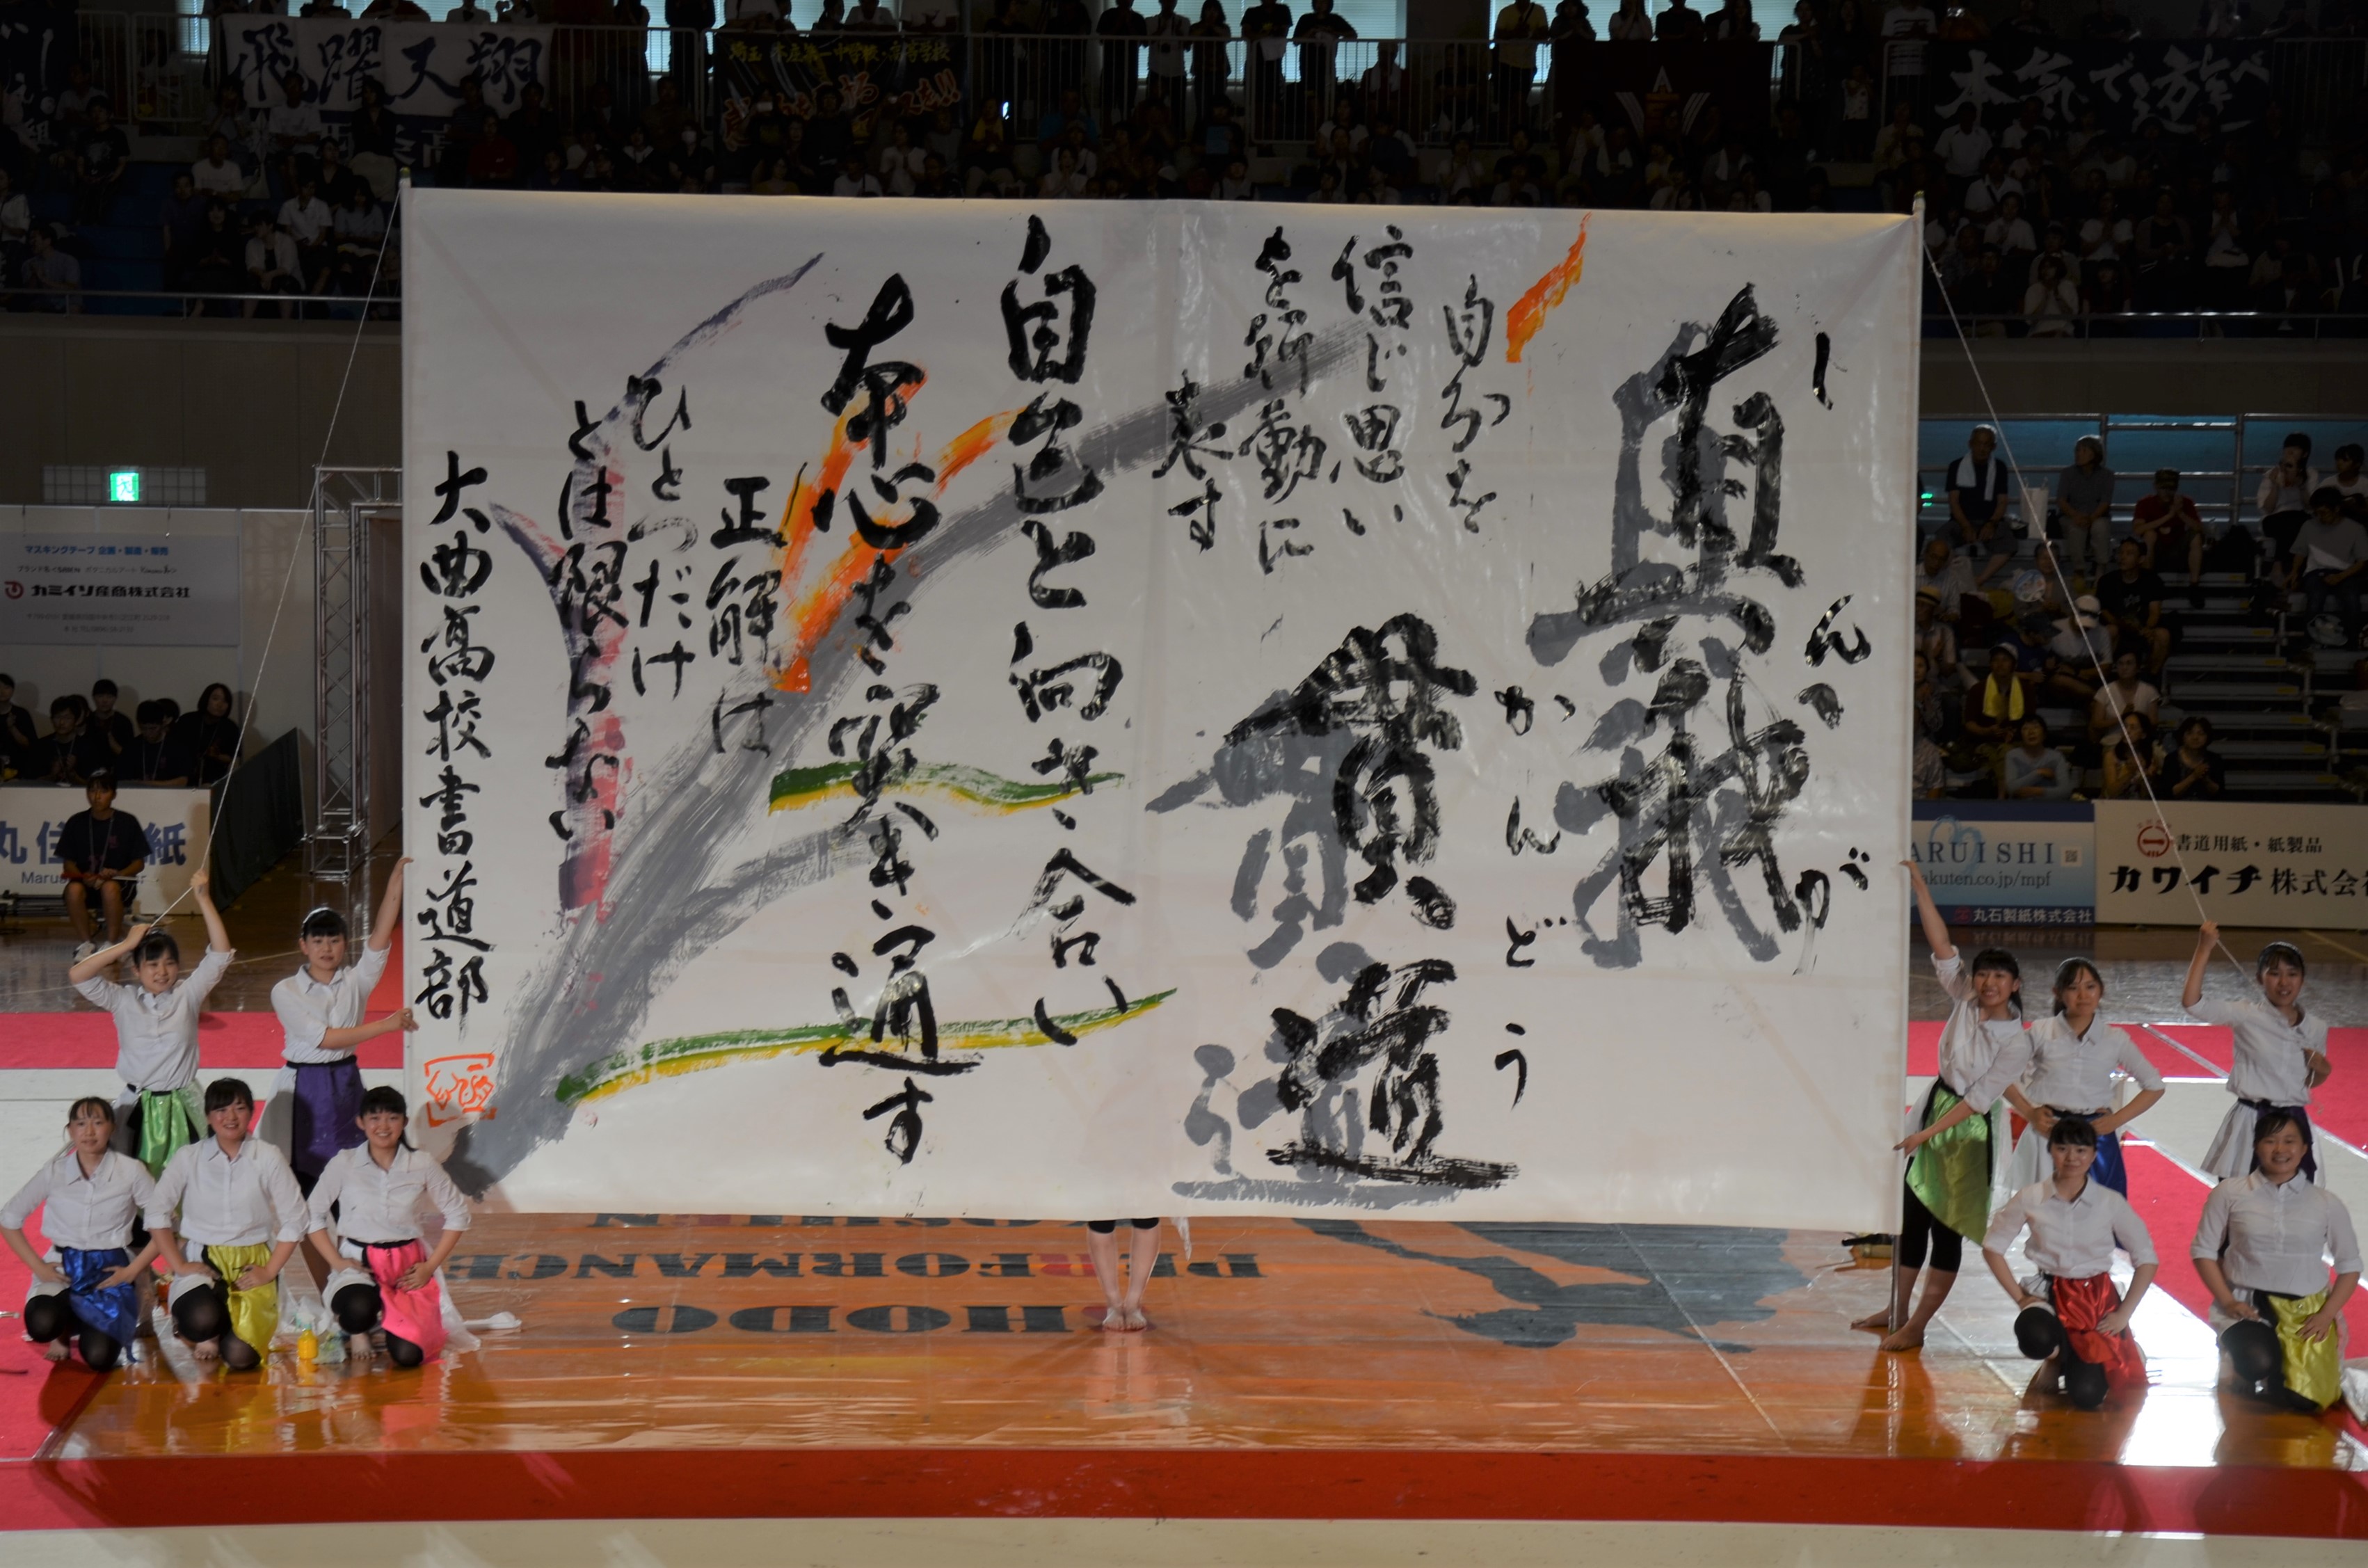 しんが
真我
かんどう
貫道
自分を
信じ思い
を行動に
表す
自己と向き合い
本心を突き通す
正解は
ひとつだけ
とは限らない
大曲高校書道部
飛躍天翔
埼玉 本庄第一中学校・高等学校
本気で遊べ
マスキングテープ 企画・製造・販売
カミイソ産商株式会社
丸住
紙
ARUISHI
akuten.co.jp/mpf
丸石製紙株式会社
書道用紙・紙製品
カワイチ株式会社
PERFORMANCE
SHODO